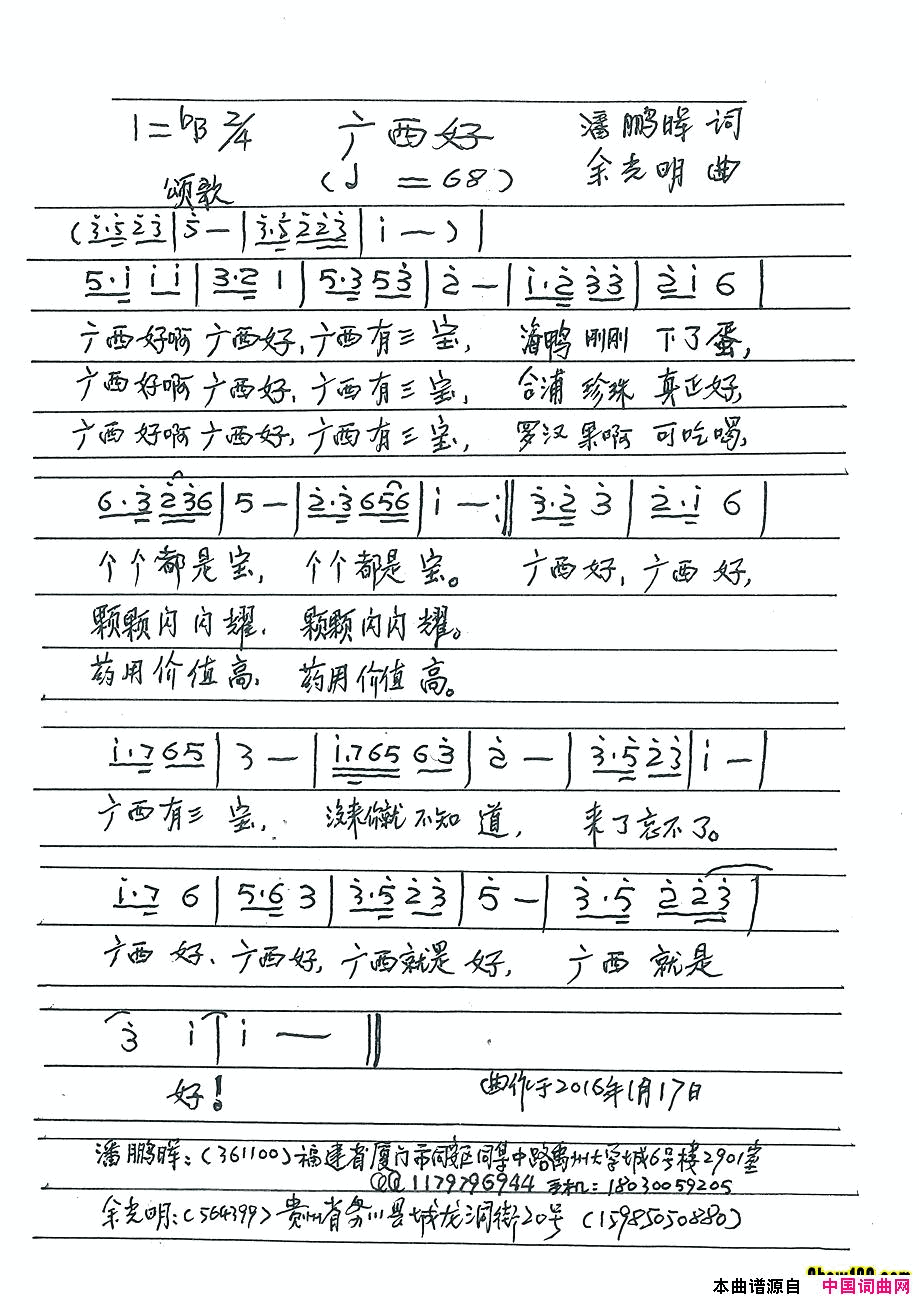 1=♭B 2/4 广西好 潘鹏晖 词
颂歌 (♩ =68) 余光明 曲
(3̇·5̇ 2̇3̇|5̇—|3̇·5̇ 2̇2̇3̇|i̇ —)|
5·i̇ i̇ i̇|3·2 1|5·3 53̇|2̇ —|i̇·2̇ 3̇3̇|2̇i̇ 6|
广西好啊 广西好,广西有三宝, 潘鸭 刚刚 下了蛋,
广西好啊 广西好,广西有三宝, 合浦 珍珠 真正好,
广西好啊 广西好,广西有三宝, 罗汉 果啊 可吃喝,
6·3̇ 2̇3̇6|5 —|2̇·3̇ 656|i̇ —:‖ 3̇·2̇ 3̇|2̇·i̇ 6|
个个都是宝, 个个都是宝。 广西好,广西好,
颗颗闪闪耀, 颗颗闪闪耀。
药用价值高, 药用价值高。
i̇·7 65|3 —|i̇·765 63̇|2̇ —|3̇·5̇ 2̇3̇|i̇ —|
广西有三宝, 没来你就不知道, 来了忘不了。
i̇·7 6|5·6 3|3̇·5̇ 2̇3̇|5̇ —|3̇·5̇ 2̇2̇3̇|
广西好、广西好,广西就是好, 广西 就是
3̇ i̇|i̇ —‖
好! 曲作于2016年1月17日
潘鹏晖:(361100)福建省厦门市同安区同集中路禹州大学城6号楼2901室
QQ 1179796944 手机:18030059205
余光明:(564399)贵州省务川县城龙洞街20号(15985050880)
本曲谱源自 中国词曲网